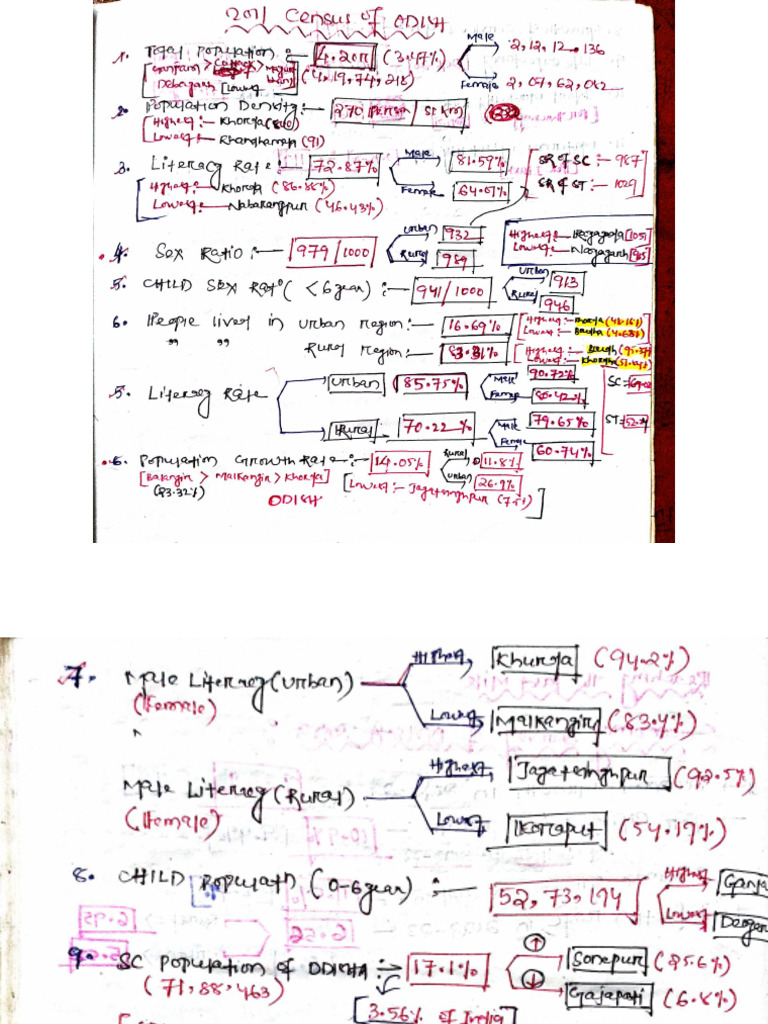 2011 Census of ODISHA
1. Total Population :- 4.20cr (3.47%) Male 2,12,12,136
[Ganjam > Cuttack > Mayurbhanj (4,19,74,218) Female 2,09,62,082
Debagarh [Lowest]
2. Population Density :- 270 person / Sq km
Highest :- Khordha (800)
Lowest :- Khandhamal (91)
3. Literacy Rate :- 72.87% Male 81.59% SR of SC :- 987
Female 64.01% SR of ST :- 1029
Highest :- Khordha (86.88%)
Lowest :- Nabarangpur (46.43%)
4. Sex Ratio :- 979/1000 Urban 932 Highest :- Rayagada [1051]
Rural 989 Lowest :- Nayagarh [915]
5. CHILD Sex Ratio (<6 year) :- 941/1000 Urban 913
Rural 946
6. People lived in Urban Region :- 16.69% [Highest :- Khordha (48.16%)
Lowest :- Boudha (4.63%)
" " Rural Region :- 83.31% [Highest :- Boudh (95.37%)
Lowest :- Khordha
5. Literacy Rate Urban 85.75% Male 90.72% SC =
Female 80.42%
Rural 70.22% Male 79.65% ST =
Female 60.74%
6. Population Growth Rate :- 14.05% Rural 11.8%
Urban 26.9%
[Balangir > Malkangiri > Khordha]
(83.32%) [Lowest :- Jagatsinghpur
ODISHA
7. Male Literacy (Urban) Highest Khurda (94.2%)
(Female) Lowest Malkangiri (83.4%)
Male Literacy (Rural) Highest Jagatsinghpur (92.5%)
(Female) Lowest Koraput (54.19%)
8. CHILD Population (0-6 year) :- 52,73,194 Highest Ganja
Lowest Deogar
9. SC Population of ODISHA :- 17.1% ↑ Sonepur (25.6%)
(71,88,463) ↓ Gajapati (6.8%)
[3.56% of India]